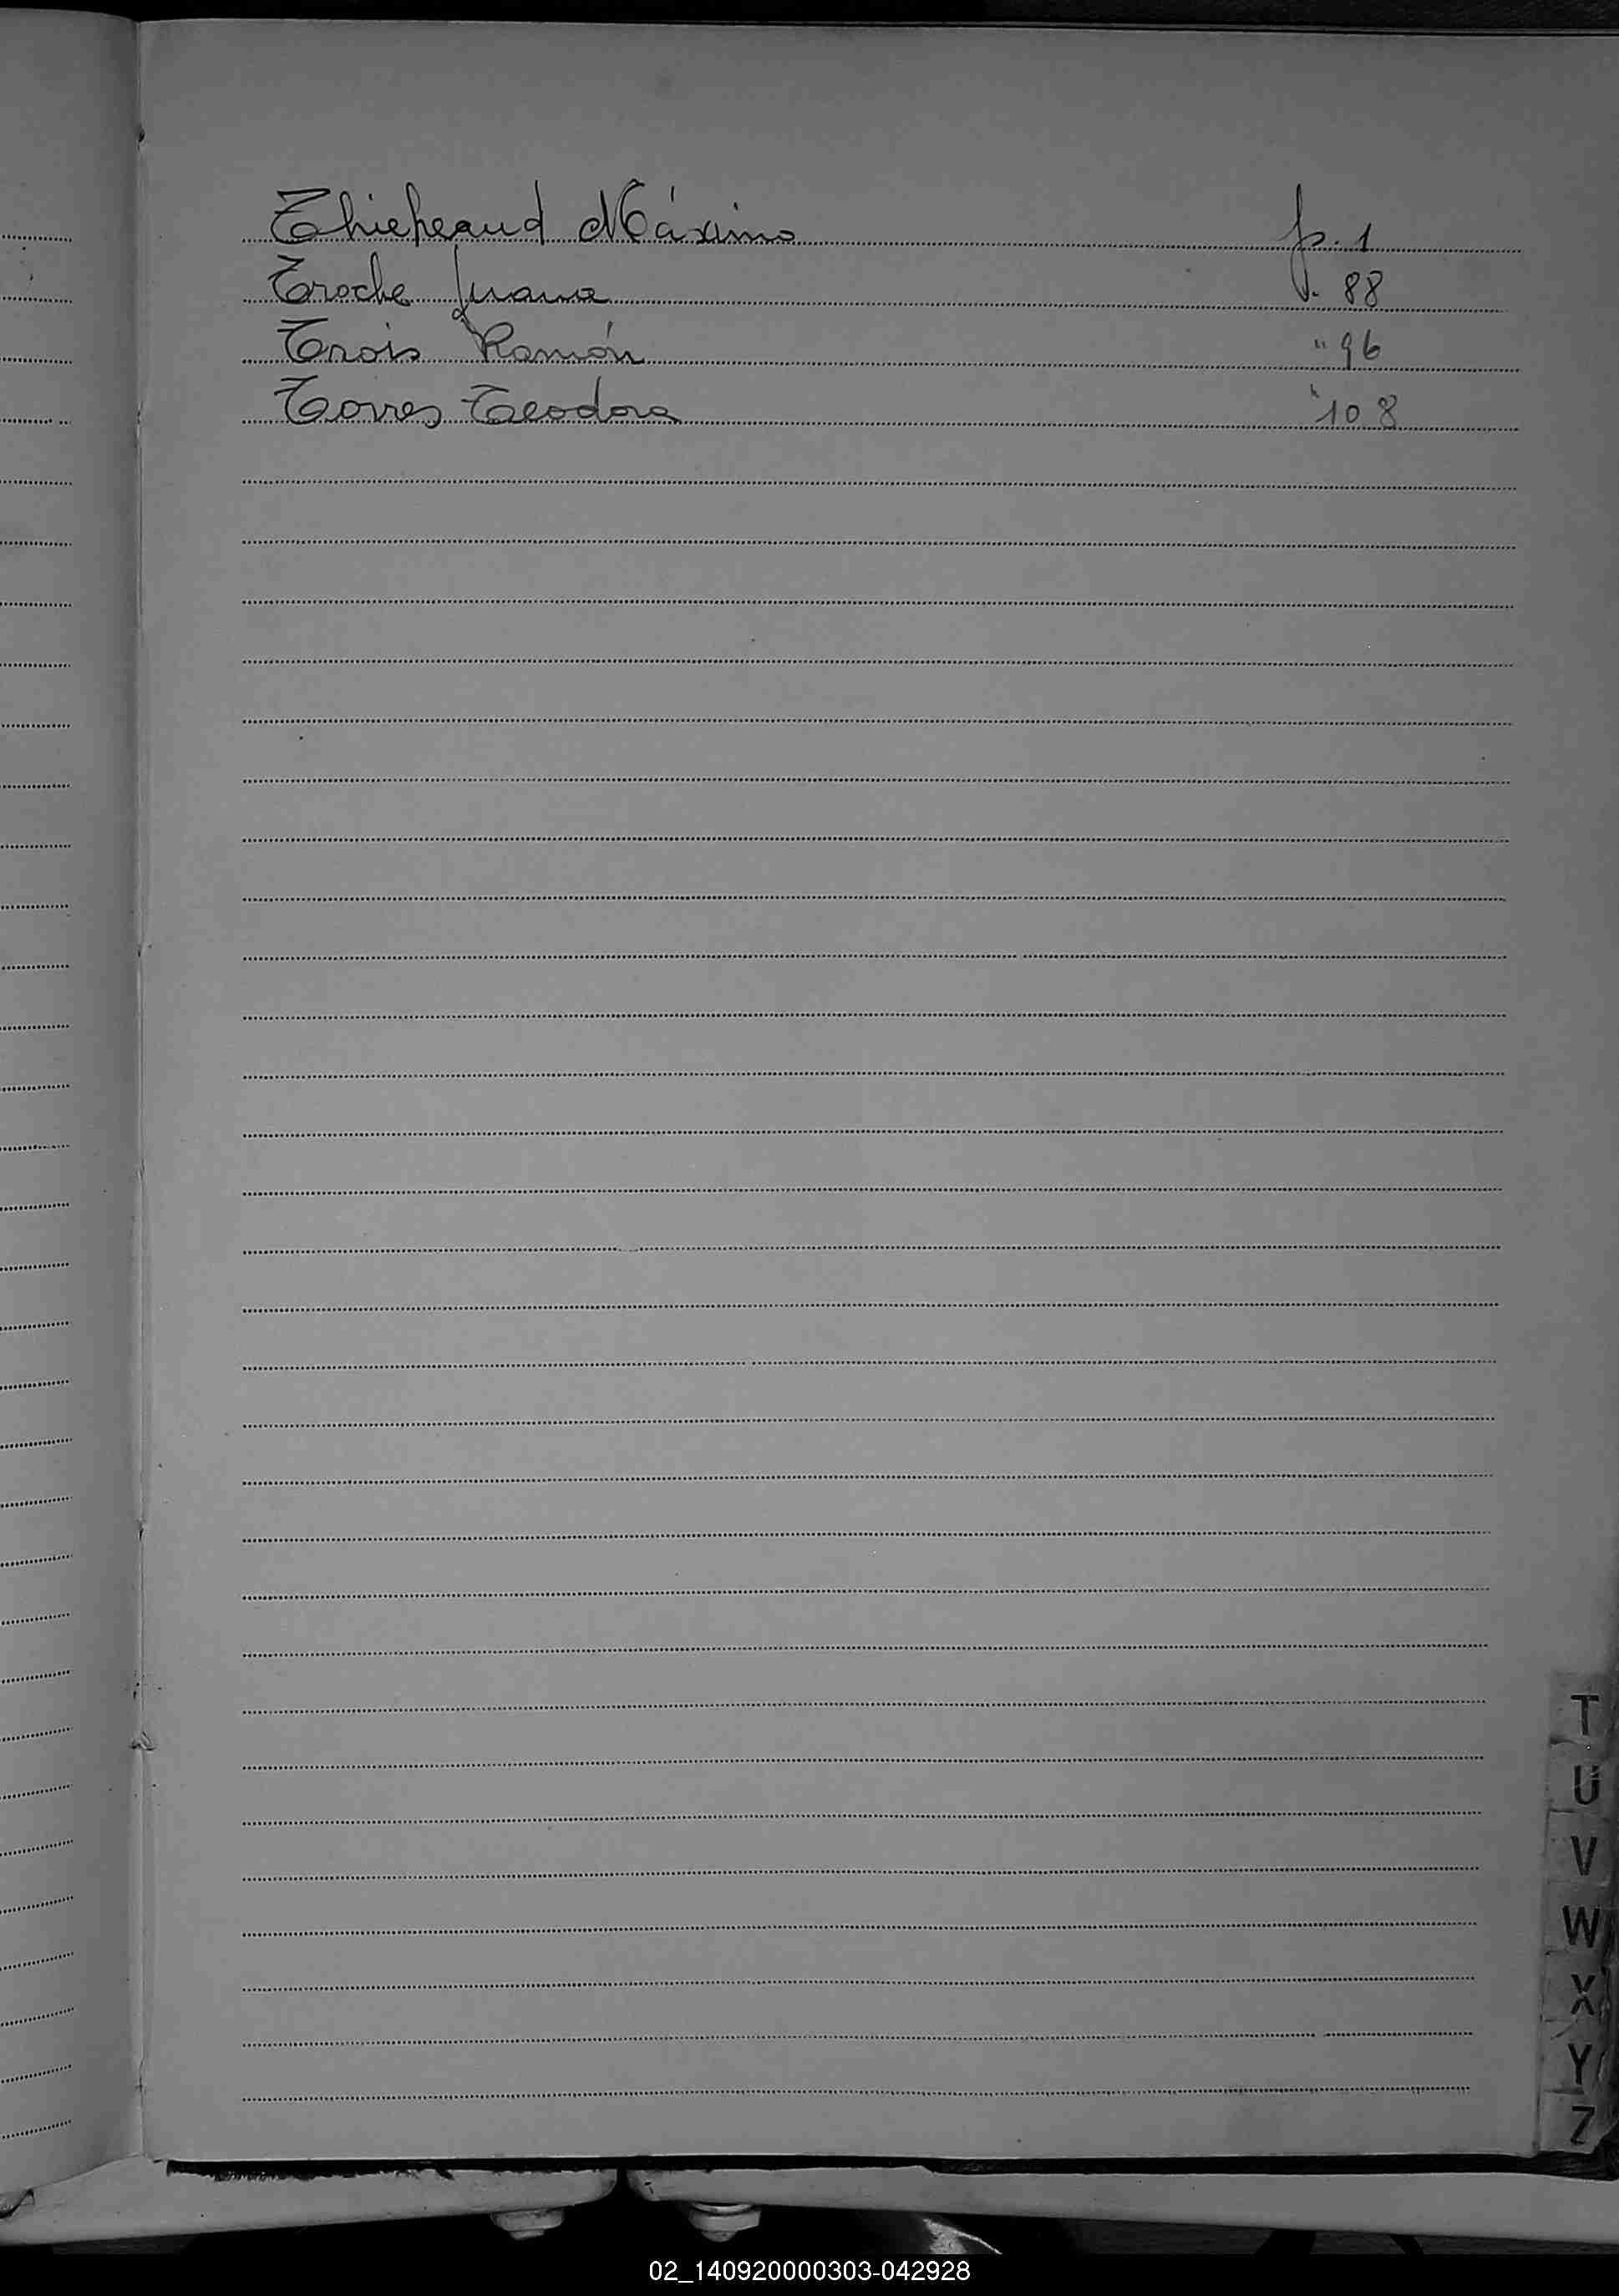 Thiebeaud Máximo p. 1
Troche Juana p. 88
Trois Ramón " 96
Torres Teodora " 108
T
U
V
W
X
Y
Z
02_140920000303-042928